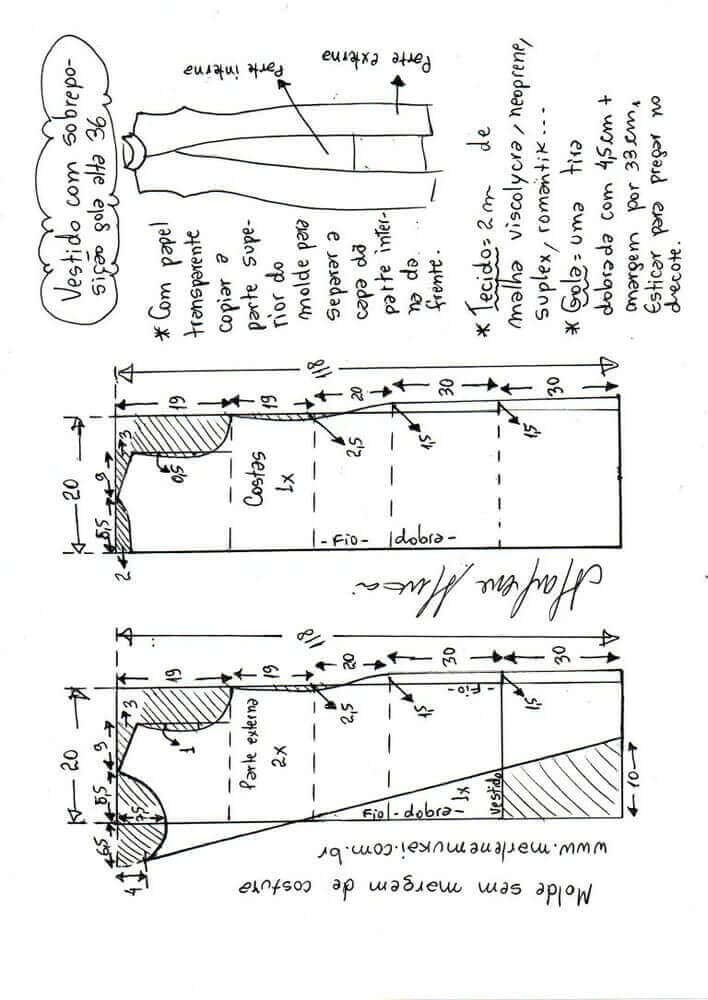 Vestido com sobrepo-
sição gola alta 36
Parte interna
Parte externa
* Com papel
transparente
copiar a
parte supe-
rior do
molde para
separar a
capa da
parte inter-
na da
frente.
* Tecido = 2m de
malha viscolycra, neoprene,
suplex, romantik...
* Gola = uma tira
dobrada com 4,5cm +
margem por 33cm.
Esticar para pregar no
decote.
118
19
19
20
30
30
20
9
5,5
3
2
0,5
2,5
1,5
1,5
Costas
1x
-Fio-
dobra-
Marlene Mukai
118
19
19
20
30
30
20
9
5,5
6,5
3
7,5
4
1
2,5
1,5
1,5
Parte externa
2x
-Fio-
Fio-dobra-
1x
vestido
10
www.marlenemukai.com.br
Molde sem margem de costura